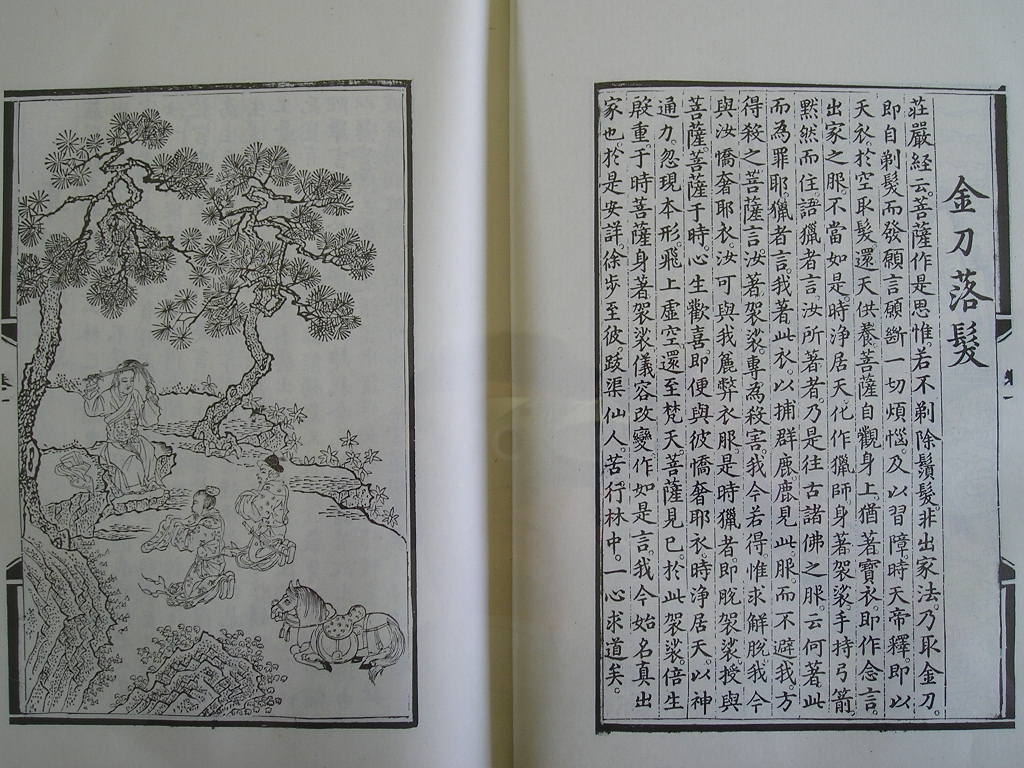 金刀落髮
莊嚴經云。菩薩作是思惟。若不剃除鬚髮。非出家法。乃取金刀。
即自剃髮。而發願言。願斷一切煩惱。及以習障。時天帝釋。即以
天衣。於空取髮。還天供養。菩薩自觀身上。猶著寶衣。即作念言。
出家之服。不當如是。時淨居天。化作獵師。身著袈裟。手持弓箭。
默然而住。語獵者言。汝所著者。乃是往古諸佛之服。云何著此
而為罪耶。獵者言。我著此衣。以捕群鹿。鹿見此服。而不避我。方
得殺之。菩薩言。汝著袈裟。專為殺害。我今若得。惟求解脫。我今
與汝憍奢耶衣。汝可與我麤弊衣服。是時獵者。即脫袈裟。授與
菩薩。菩薩于時。心生歡喜。即便與彼憍奢耶衣。時淨居天。以神
通力。忽現本形。飛上虛空。還至梵天。菩薩見已。於此袈裟。倍生
殷重。于時菩薩。身著袈裟。儀容改變。作如是言。我今始名真出
家也。於是安詳。徐步至彼。跋渠仙人。苦行林中。一心求道矣。